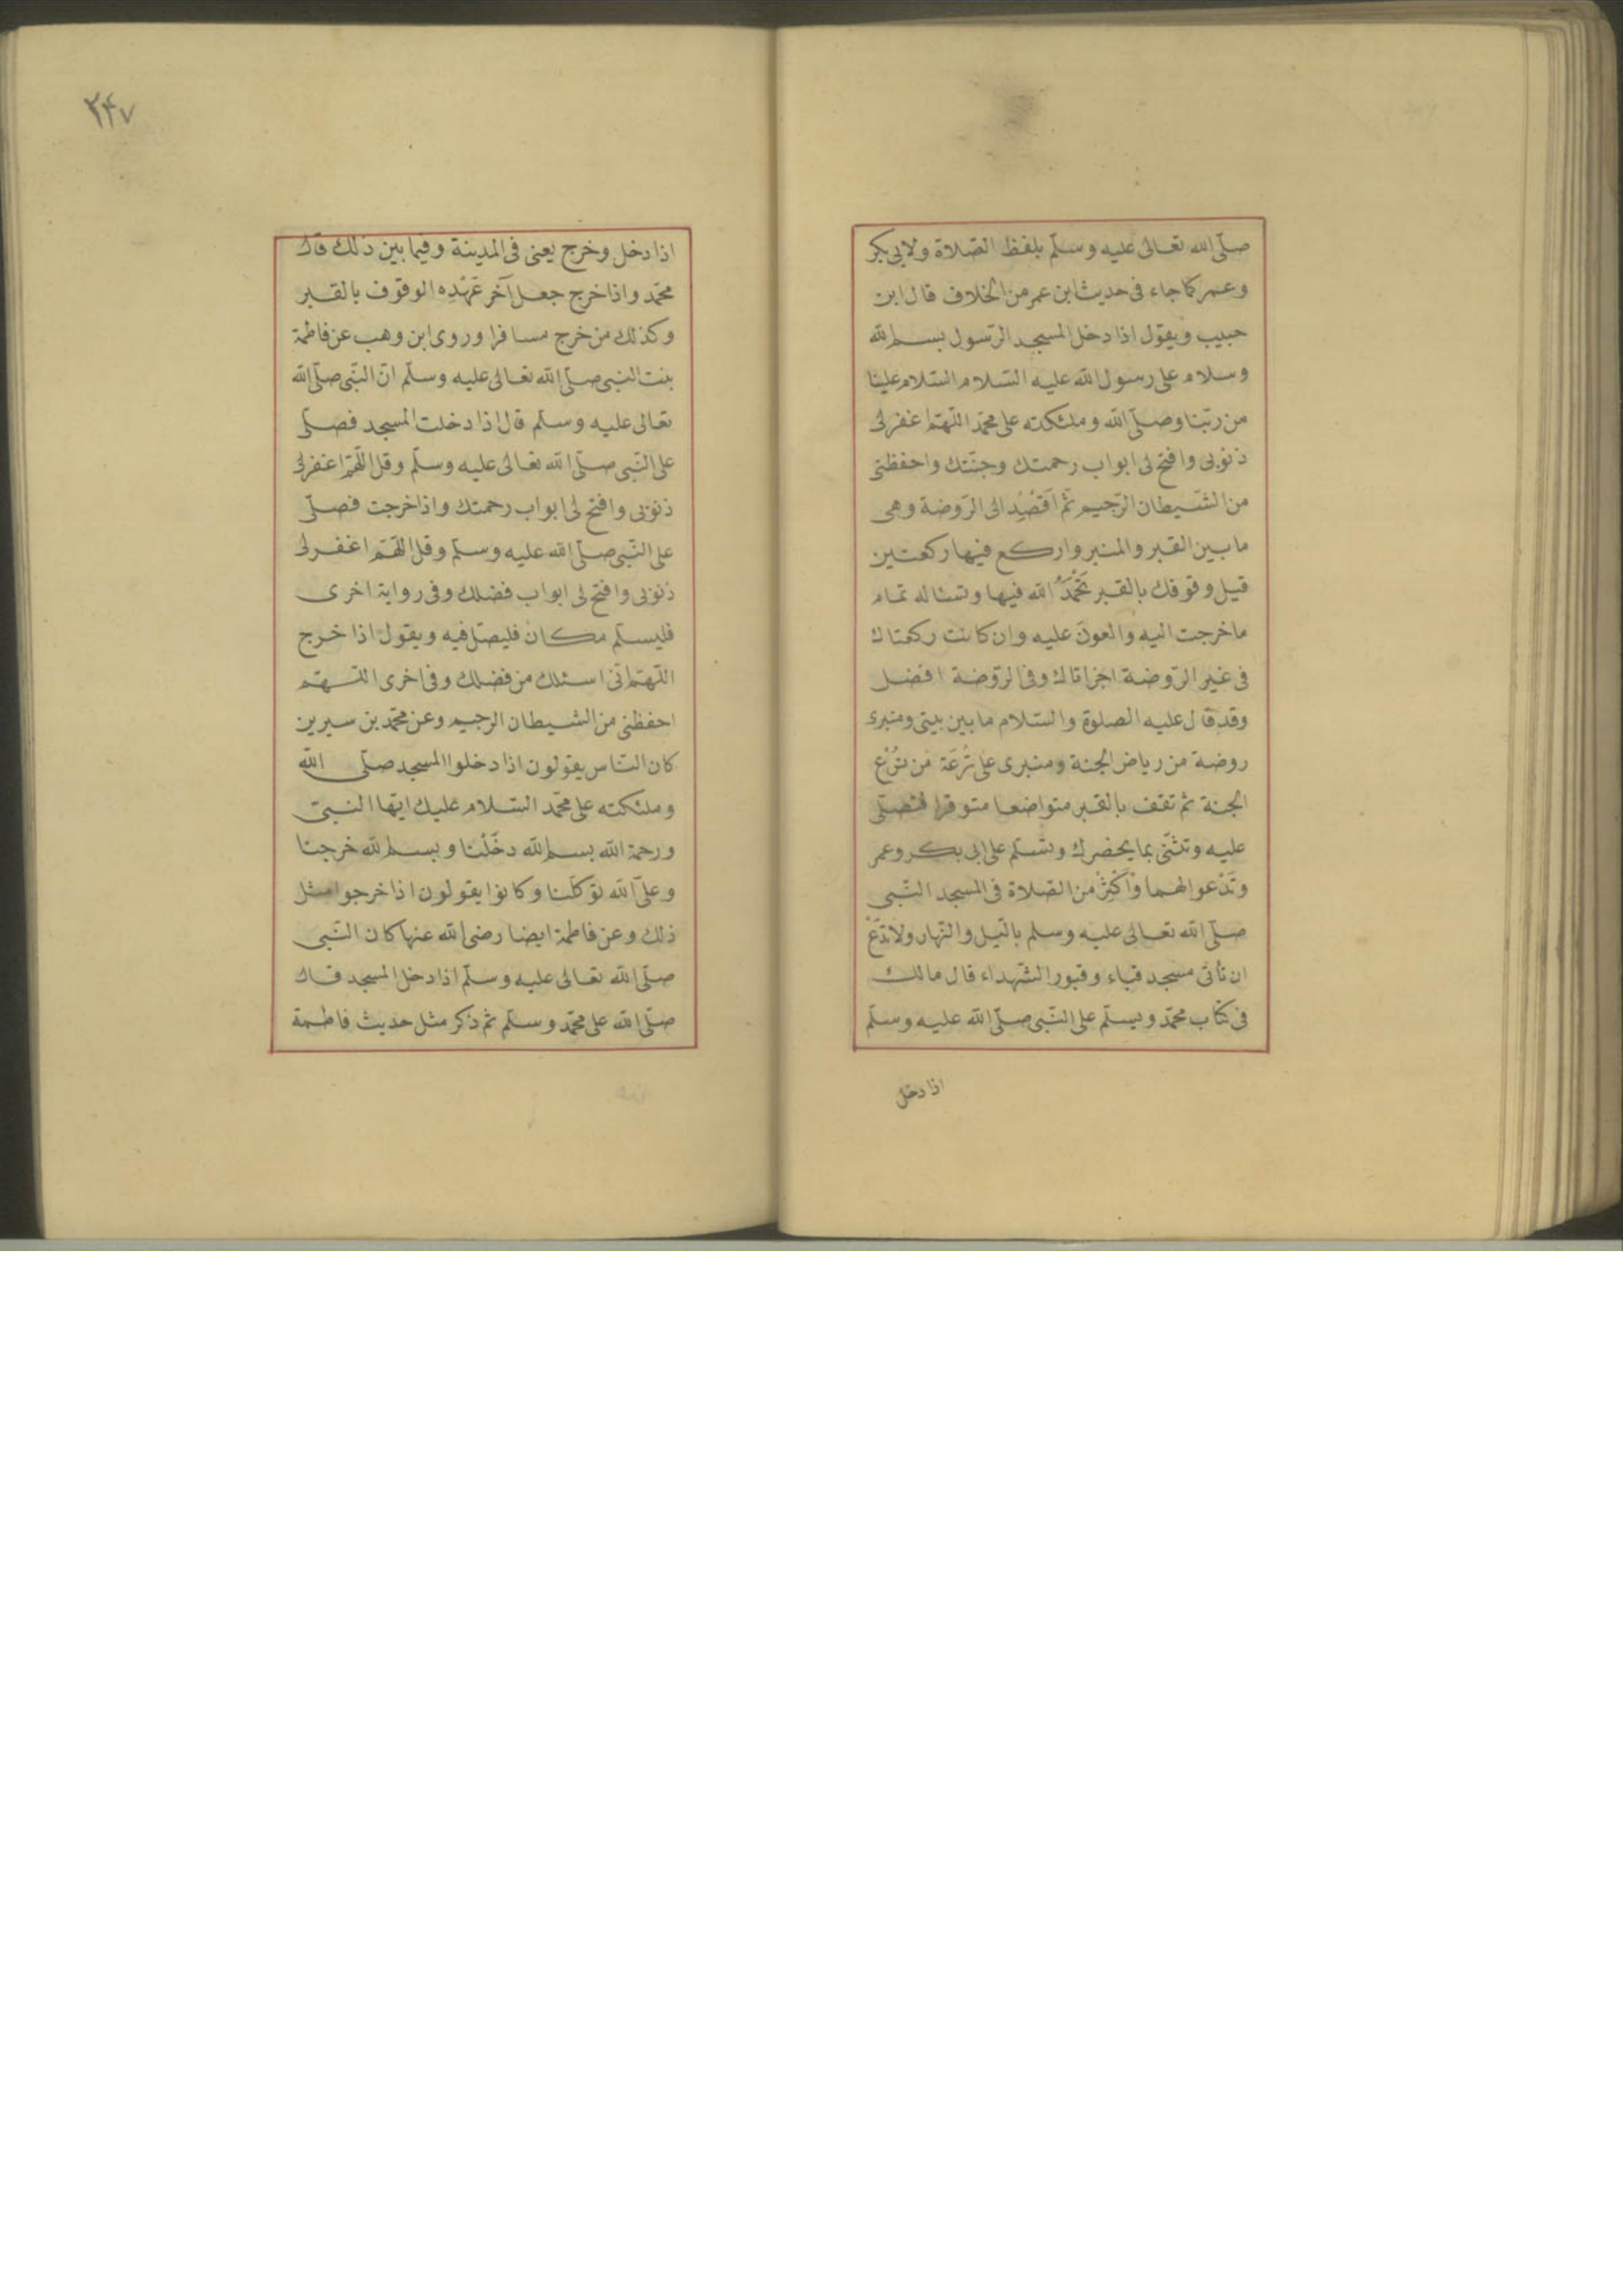 صلّى الله تعالى عليه وسلّم بلفظ الصّلاة ولابى بكر
وعمر كما جاء فى حديث ابن عمر من الخلاف قال ابن
حبيب ويقول اذا دخل المسجد الرّسول بسم الله
وسلام على رسول الله عليه السّلام السّلام علينا
من ربّنا وصلّى الله وملئكته على محمّد اللّهمّ اغفر لى
ذنوبى وافتح لى ابواب رحمتك وجنّتك واحفظنى
من الشّيطان الرّجيم ثمّ اَقْصِد الى الرّوضة وهى
ما بين القبر والمنبر واركع فيها ركعتين
قبل وقوفك بالقبر تَحْمَدُ الله فيها وتسئاله تمام
ما خرجت اليه والعونَ عليه وان كانت ركعتاك
فى غير الرّوضة اجزاتاك وفى الرّوضة افضل
وقد قال عليه الصلوة والسّلام ما بين بيتى ومنبرى
روضة من رياض الجنة ومنبرى على تُرعَة من تُرَع
الجنة ثم تقف بالقبر متواضعا متوقرا فتصلّى
عليه وتثنى بما يحضرك وتسّلم على ابى بكر وعمر
وتَدْعوا لهما وَاَكْثِرْ من الصّلاة فى المسجد النّبى
صلّى الله تعالى عليه وسلم بالّيل والنّهار ولا تدَعْ
ان تأتى مسجد قباء وقبور الشّهداء قال مالك
فى كتاب محمّد ويسلّم على النّبى صلّى الله عليه وسلّم
اذا دخل
٢٤٧
اذا دخل وخرج يعنى فى المدينة وفيما بين ذلك قال
محمّد واذا خرج جعل آخر عَهْدِه الوقوف بالقبر
وكذلك من خرج مسافرا وروى ابن وهب عن فاطمة
بنت النبى صلّى الله تعالى عليه وسلّم انّ النّبى صلّى الله
تعالى عليه وسلّم قال اذا دخلت المسجد فصلّى
على النّبى صلّى الله تعالى عليه وسلّم وقل اللّهمّ اغفر لى
ذنوبى وافتح لى ابواب رحمتك واذا خرجت فصلّى
على النّبى صلّى الله عليه وسلّم وقل اللّهمّ اغفر لى
ذنوبى وافتح لى ابواب فضلك وفى رواية اخرى
فليسلّم مكان فليصلّ فيه ويقول اذا خرج
اللّهمّ انّى اسئلك من فضلك وفى اخرى اللّهمّ
احفظنى من الشيطان الرجيم وعن محمّد بن سيرين
كان النّاس يقولون اذا دخلوا المسجد صلّى الله
وملئكته على محمّد السّلام عليك ايّها النّبىّ
ورحمة الله بسم الله دخَلْنا وبسم الله خرجنا
وعلى الله توكلنا وكانوا يقولون اذا خرجوا مثل
ذلك وعن فاطمة ايضا رضى الله عنها كان النّبى
صلّى الله تعالى عليه وسلّم اذا دخل المسجد قال
صلّى الله على محمّد وسلّم ثم ذكر مثل حديث فاطمة